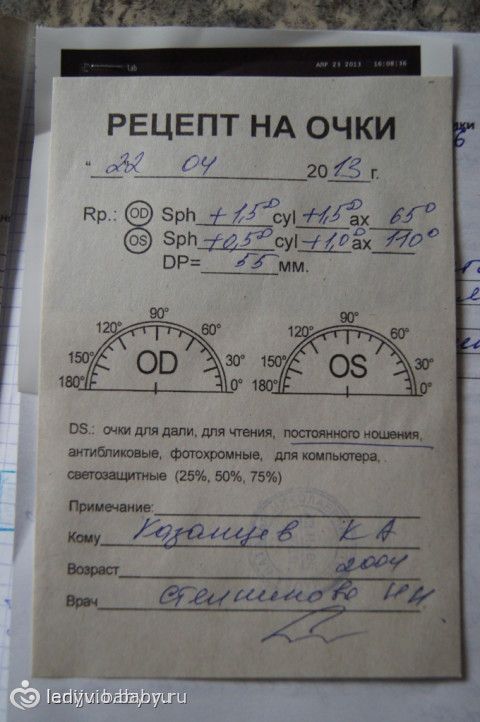 lab APR 23 2013 16:08:36
РЕЦЕПТ НА ОЧКИ
" 22 " 04 2013 г.
Rp.: OD Sph +1,50 cyl +1,50 ax 65°
OS Sph +0,50 cyl +1,00 ax 110°
DP= 55 мм.
90° 90°
120° 60° 120° 60°
150° OD 30° 150° OS 30°
180° 0° 180° 0°
DS.: очки для дали, для чтения, постоянного ношения,
антибликовые, фотохромные, для компьютера,
светозащитные (25%, 50%, 75%)
Примечание:
Кому Казанцев К А
Возраст 2004
Врач